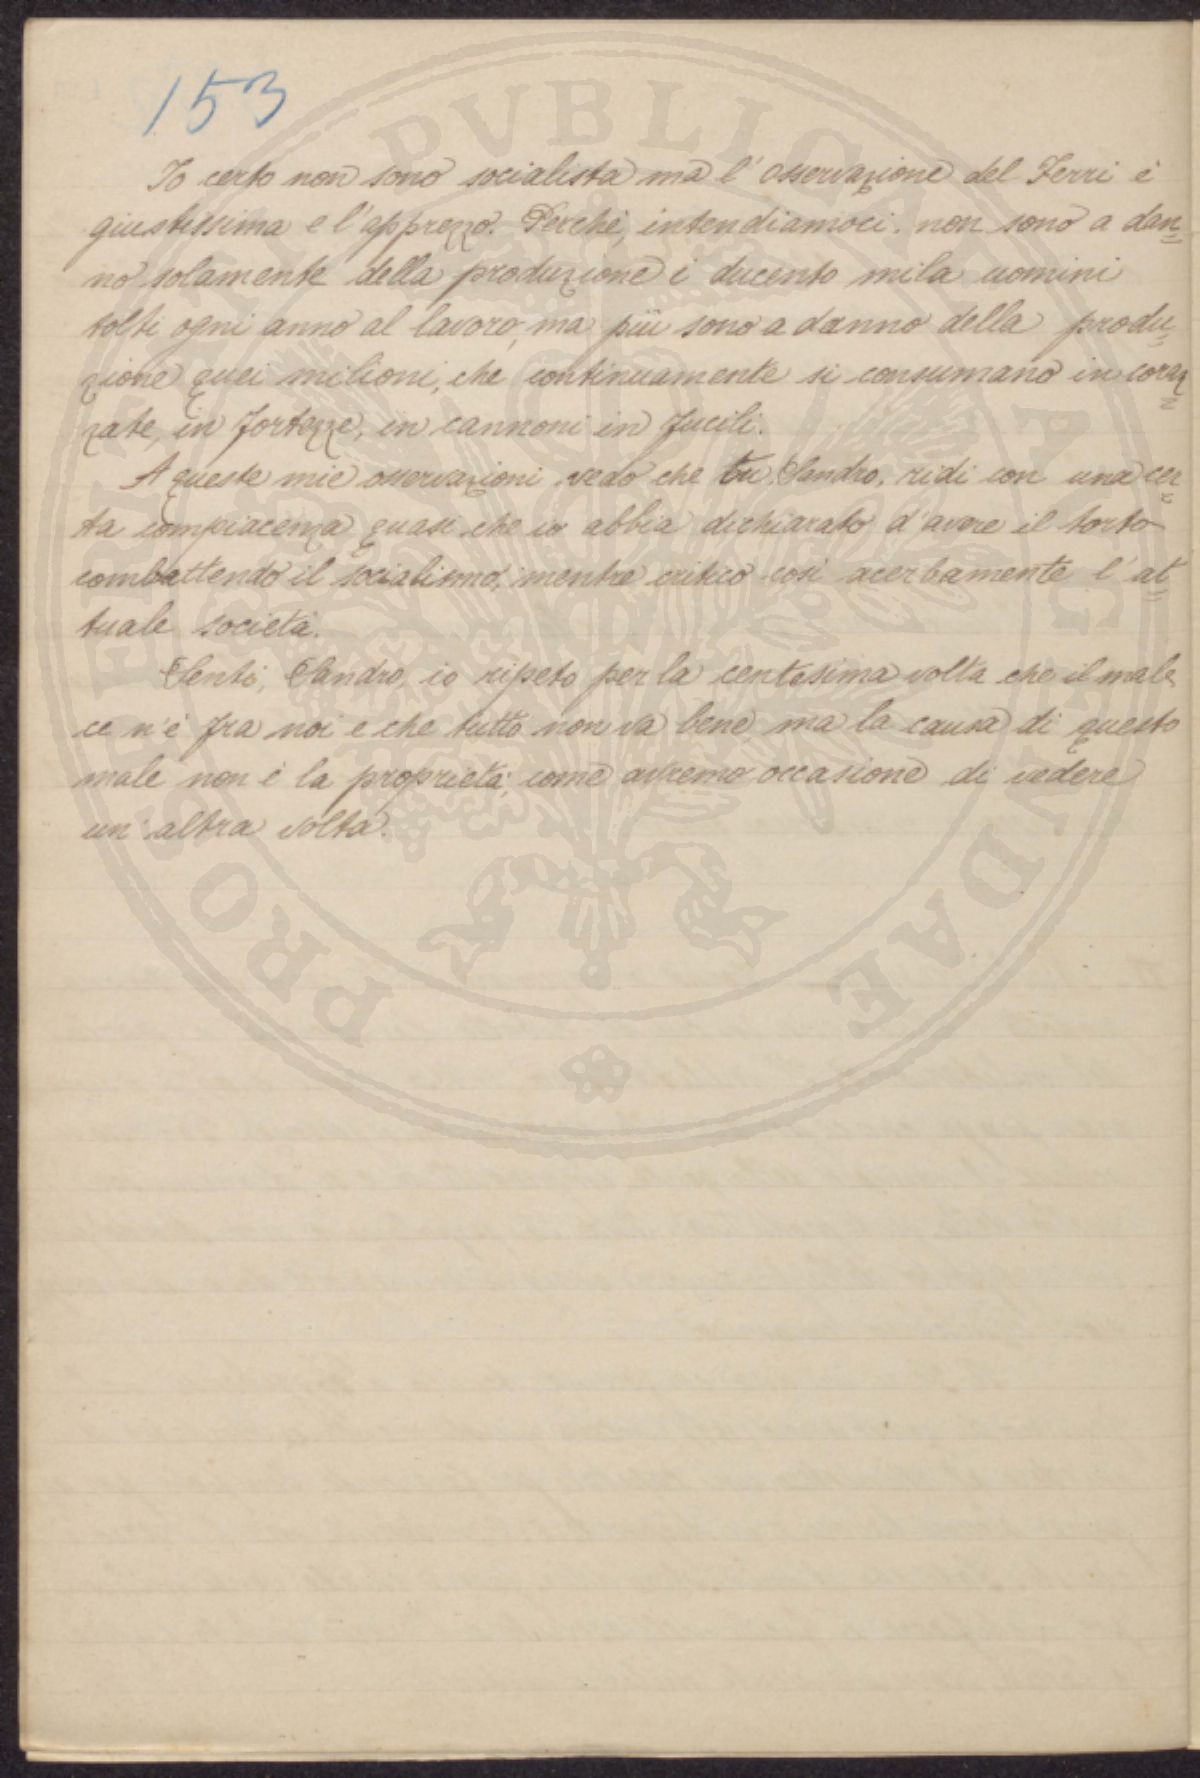 153
Io certo non sono socialista ma l'osservazione del Ferri è
giustissima e l'apprezzo. Perchè, intendiamoci, non sono a dan=
no solamente della produzione i ducento mila uomini
tolti ogni anno al lavoro, ma più sono a danno della produ=
zione quei milioni, che continuamente si consumano in coraz=
zate, in fortezze, in cannoni in fucili.
A queste mie osservazioni vedo che tu, Sandro, ridi con una cer=
ta compiacenza quasi che io abbia dichiarato d'avere il torto
combattendo il socialismo, mentre critico così acerbamente l'at=
tuale società.
Senti, Sandro, io ripeto per la centesima volta che il male
ce n'è fra noi e che tutto non va bene ma la causa di questo
male non è la proprietà, come avremo occasione di vedere
un'altra volta.
PROSPERITATI PVBLICAE AVGENDAE